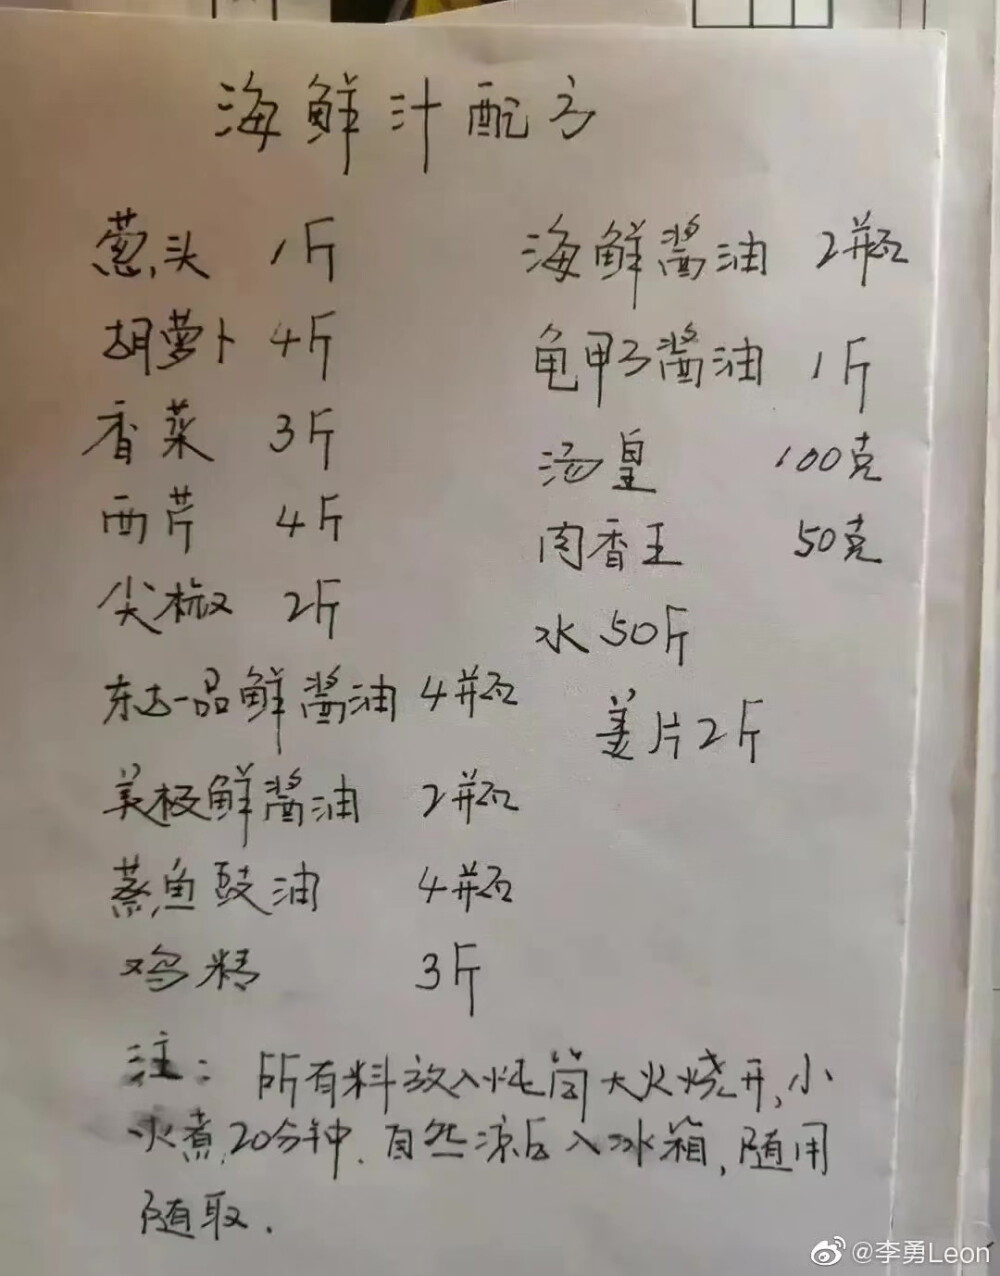 海鲜汁配方
葱头 1斤
胡萝卜 4斤
香菜 3斤
西芹 4斤
尖椒 2斤
东古一品鲜酱油 4瓶
美极鲜酱油 2瓶
蒸鱼豉油 4瓶
鸡精 3斤
海鲜酱油 2瓶
龟甲万酱油 1斤
汤皇 100克
肉香王 50克
水 50斤
姜片2斤
注：所有料放入炖筒大火烧开,小
火煮20分钟.自然凉后入冰箱,随用
随取.
@李勇Leon